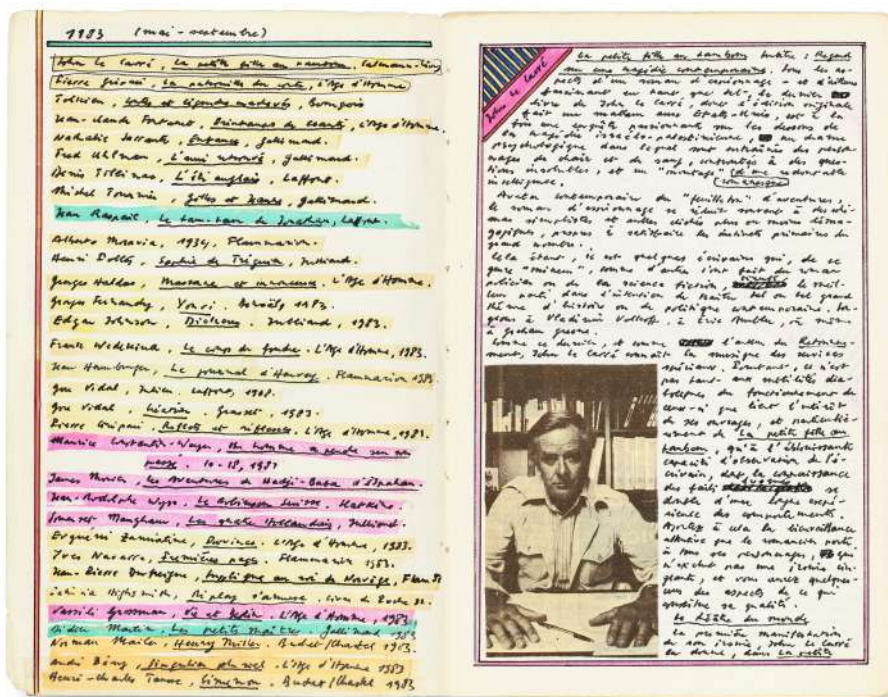 1983 (mai - septembre)
John le Carré, La petite fille au tambour. Calmann-Lévy
Pierre Gripari, La patrouille du conte, L'Age d'Homme
Tolkien, Contes et légendes inachevés, Bourgois
Jean-Claude Fontanet, Printemps de beauté, L'Age d'Homme.
Nathalie Sarraute, Enfance, Gallimard.
Fred Uhlman, L'ami retrouvé, Gallimard.
Denis Tillinac, L'été anglais, Laffont.
Michel Tournier, Gilles et Jeanne, Gallimard.
Jean Raspail, Le tam-tam de Jonathan, Laffont.
Alberto Moravia, 1934, Flammarion.
Henri Dollé, Sophie de Tréguier, Julliard.
Georges Haldas, Massacre et innocence. L'Age d'Homme.
Georges 1983.
Edgar Johnson, Dickens. Julliard, 1983.
Frank Wedekind, Le coup de foudre. L'Age d'Homme, 1983.
Jean Hamburger, Le journal d'Harvey. Flammarion 1983
Gore Vidal, Julien. Laffont, 1968.
Gore Vidal, Création. Grasset, 1983.
Pierre Gripari, Reflets et réflexes. L'Age d'Homme, 1983.
Maurice Constantin-Weyer, Un homme se penche sur son
passé. 10-18, 1983
James Morier, Les aventures de Hadji-Baba d'Ispahan.
Jean-Rodolphe Wyss, Le Robinson suisse. Slatkine.
Somerset Maugham, Les quatre Hollandais, Julliard.
Evgueni Zamiatine, Province. L'Age d'Homme, 1983.
Yves Navarre, Premières pages. Flammarion 1983.
Jean-Pierre au roi de Norvège, Flam
Patricia Highsmith, Ripley s'amuse. Livre de Poche
Vassili Grossman, Vie et destin. L'Age d'Homme, 1983
Didier Martin, Les petits maîtres. Gallimard 1983
Norman Mailer, Henry Miller. Buchet/Chastel 1983.
André L'Age d'Homme 1983
Henri-Charles Tauxe, Simenon. Buchet/Chastel 1983
John le Carré
La petite fille au tambour Regard
sur une tragédie contemporaine. Sous les as-
pects d'un roman d'espionnage - et d'ailleurs
fascinant en tant que tel - le dernier
livre de John le Carré, dont l'édition originale
fait un malheur aux Etats-Unis, est à la
fois une enquête passionnante sur les dessous de
la tragédie israélo-palestinienne, un drame
psychologique dans lequel sont entraînés des person-
nages de chair et de sang, confrontés à des ques-
tions insolubles, et un "montage" d'une redoutable
intelligence. romanesque
Avatar contemporain du "feuilleton" d'aventures,
le roman d'espionnage se réduit souvent à des sché-
mas simplistes et autres clichés plus ou moins déma-
gogiques, propres à satisfaire les instincts primaires du
grand nombre.
Cela étant, il est quelques écrivains qui, de ce
genre "mineur", comme d'autres l'ont fait du roman
policier ou de la science fiction, le meil-
leur parti, dans l'intention de traiter tel ou tel grand
thème d'histoire ou de politique contemporaine. Son-
geons à Vladimir Volkoff, à Eric Ambler, ou même
à Graham Greene.
Comme ce dernier, et comme l'auteur du Retourne-
ment, John le Carré connaît la musique des services
spéciaux. Pourtant, ce n'est
pas tant aux subtilités dia-
boliques du fonctionnement de
ceux-ci que tient l'intérêt
de ses ouvrages, et particuliè-
rement de La petite fille au
tambour, qu'à l'éblouissante
capacité d'observation de l'é-
crivain, dont la connaissance
des faits se
double d'une expé-
rience des comportements.
Ajoutez à cela la bienveillance
attentive que le romancier porte
à tous ses personnages, qui
n'exclut pas une ironie cin-
glante, et vous aurez quelques-
uns des aspects de ce qui
constitue sa qualité.
Le théâtre du monde
La première manifestation
de son ironie, John le Carré
la donne, dans La petite